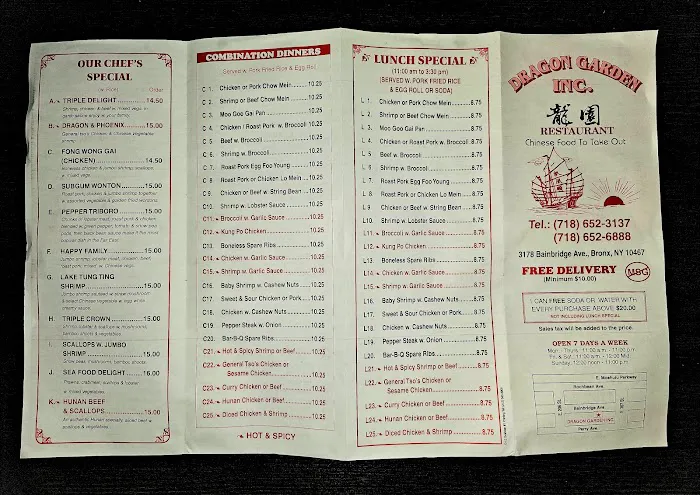 OUR CHEF'S
SPECIAL
(w. Rice) Order
A. TRIPLE DELIGHT 14.50
B. DRAGON & PHOENIX 15.00
C. FONG WONG GAI
(CHICKEN) 14.50
D. SUBGUM WONTON 15.00
E. PEPPER TRIBORO 15.00
F. HAPPY FAMILY 15.00
G. LAKE TUNG TING
SHRIMP 15.00
H. TRIPLE CROWN 15.00
I. SCALLOPS W. JUMBO
SHRIMP 15.00
J. SEA FOOD DELIGHT 16.00
K. HUNAN BEEF
& SCALLOPS 15.00
COMBINATION DINNERS
Served w. Pork Fried Rice & Egg Roll
C 1. Chicken or Pork Chow Mein 10.25
C 2. Shrimp or Beef Chow Mein 10.25
C 3. Moo Goo Gai Pan 10.25
C 4. Chicken / Roast Pork w. Broccoli 10.25
C 5. Beef w. Broccoli 10.25
C 6. Shrimp w. Broccoli 10.25
C 7. Roast Pork Egg Foo Young 10.25
C 8. Roast Pork or Chicken Lo Mein 10.25
C 9. Chicken or Beef w. String Bean 10.25
C10. Shrimp w. Lobster Sauce 10.25
C11. Broccoli w. Garlic Sauce 10.25
C12. Kung Po Chicken 10.25
C13. Boneless Spare Ribs 10.25
C14. Chicken w. Garlic Sauce 10.25
C15. Shrimp w. Garlic Sauce 10.25
C16. Baby Shrimp w. Cashew Nuts 10.25
C17. Sweet & Sour Chicken or Pork 10.25
C18. Chicken w. Cashew Nuts 10.25
C19. Pepper Steak w. Onion 10.25
C20. Bar-B-Q Spare Ribs 10.25
C21. Hot & Spicy Shrimp or Beef 10.25
C22. General Tso's Chicken or
Sesame Chicken 10.25
C23. Curry Chicken or Beef 10.25
C24. Hunan Chicken or Beef 10.25
C25. Diced Chicken & Shrimp 10.25
HOT & SPICY
LUNCH SPECIAL
(11:00 am to 3:30 pm)
(SERVED W. PORK FRIED RICE
& EGG ROLL OR SODA)
L 1. Chicken or Pork Chow Mein 8.75
L 2. Shrimp or Beef Chow Mein 8.75
L 3. Moo Goo Gai Pan 8.75
L 4. Chicken or Roast Pork w. Broccoli 8.75
L 5. Beef w. Broccoli 8.75
L 6. Shrimp w. Broccoli 8.75
L 7. Roast Pork Egg Foo Young 8.75
L 8. Roast Pork or Chicken Lo Mein 8.75
L 9. Chicken or Beef w. String Bean 8.75
L10. Shrimp w. Lobster Sauce 8.75
L11. Broccoli w. Garlic Sauce 8.75
L12. Kung Po Chicken 8.75
L13. Boneless Spare Ribs 8.75
L14. Chicken w. Garlic Sauce 8.75
L15. Shrimp w. Garlic Sauce 8.75
L16. Baby Shrimp w. Cashew Nuts 8.75
L17. Sweet & Sour Chicken or Pork 8.75
L18. Chicken w. Cashew Nuts 8.75
L19. Pepper Steak w. Onion 8.75
L20. Bar-B-Q Spare Ribs 8.75
L21. Hot & Spicy Shrimp or Beef 8.75
L22. General Tso's Chicken or
Sesame Chicken 8.75
L23. Curry Chicken or Beef 8.75
L24. Hunan Chicken or Beef 8.75
L25. Diced Chicken & Shrimp 8.75
DRAGON GARDEN
INC.
龍園
RESTAURANT
Chinese Food To Take Out
Tel.: (718) 652-3137
(718) 652-6888
3178 Bainbridge Ave., Bronx, NY 10467
FREE DELIVERY
(Minimum $10.00)
MSG
1 CAN FREE SODA OR WATER WITH
EVERY PURCHASE ABOVE $20.00
NOT INCLUDING LUNCH SPECIAL
Sales tax will be added to the price.
OPEN 7 DAYS A WEEK
Mon - Thurs.: 11:00 a.m. - 11:00 p.m.
Fri. & Sat.: 11:00 a.m. - 12:00 Mid
Sunday: 12:00 noon - 11:00 p.m.
E. Mosholu Parkway
Rochambeau Ave.
Bainbridge Ave.
DRAGON GARDEN INC.
Perry Ave.